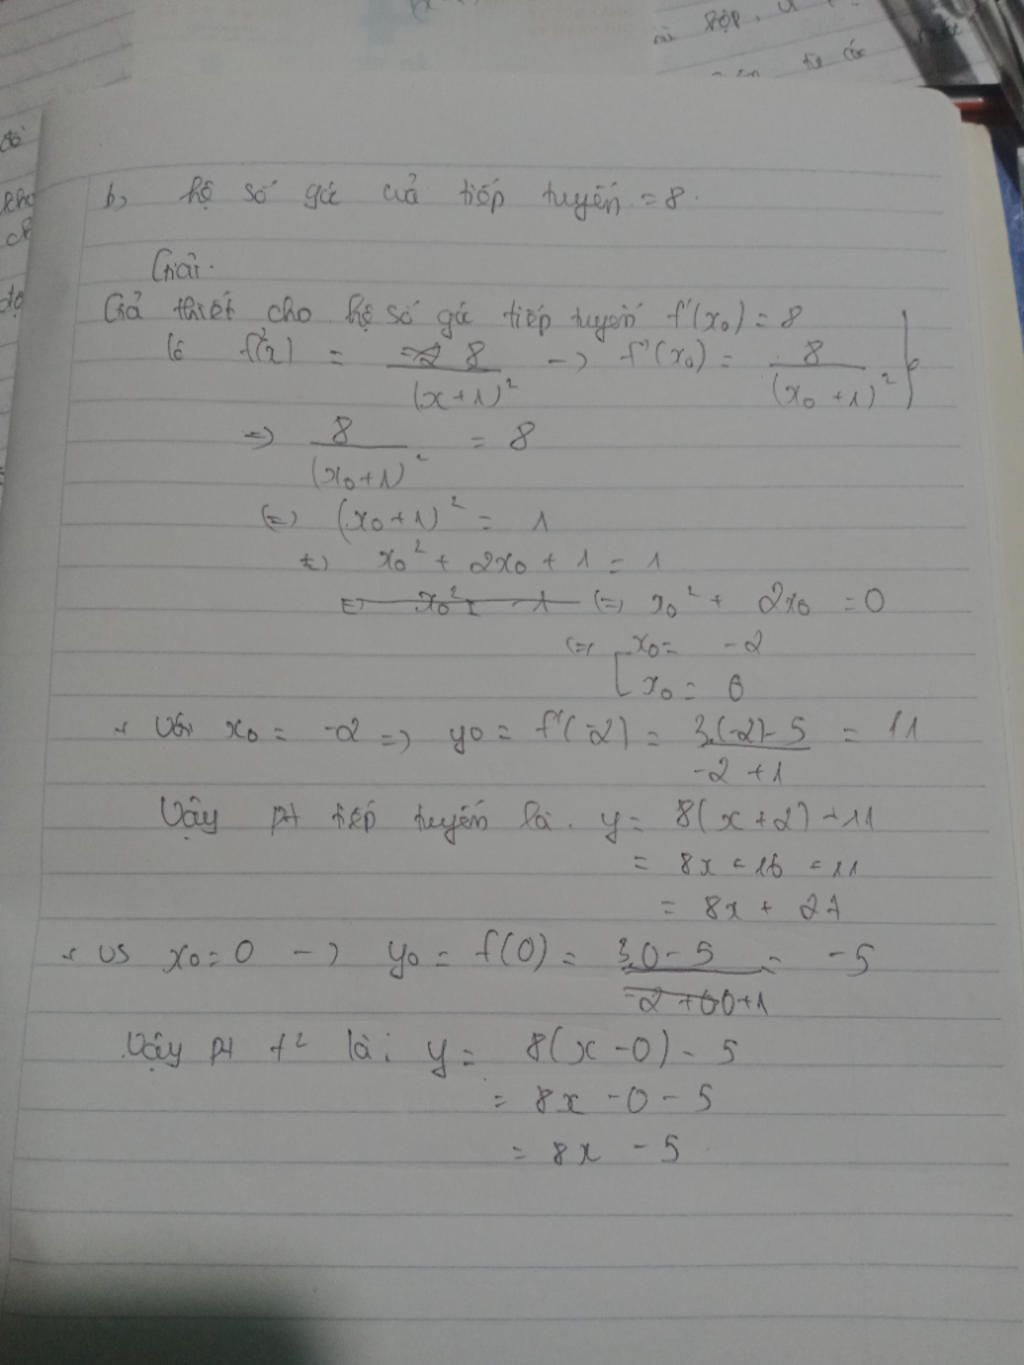 rài gộp.
từ các
b, hệ số góc của tiếp tuyến = 8.
Giải.
Giả thiết cho hệ số góc tiếp tuyến f'(x₀) = 8
Có f'(x) = 8/(x+1)² -> f'(x₀) = 8/(x₀+1)² }
=> 8/(x₀+1)² = 8
(=) (x₀+1)² = 1
(=) x₀² + 2x₀ + 1 = 1
(=) x₀² + 2x₀ = 0
(=) [ x₀ = -2
x₀ = 0
+ Với x₀ = -2 => y₀ = f'(-2) = 3.(-2)-5/-2+1 = 11
Vậy pt tiếp tuyến là. y = 8(x+2) + 11
= 8x + 16 + 11
= 8x + 27
+ Vs x₀ = 0 -> y₀ = f(0) = 3.0-5/0+1 = -5
Vậy pt t² là: y = 8(x-0) - 5
= 8x - 0 - 5
= 8x - 5